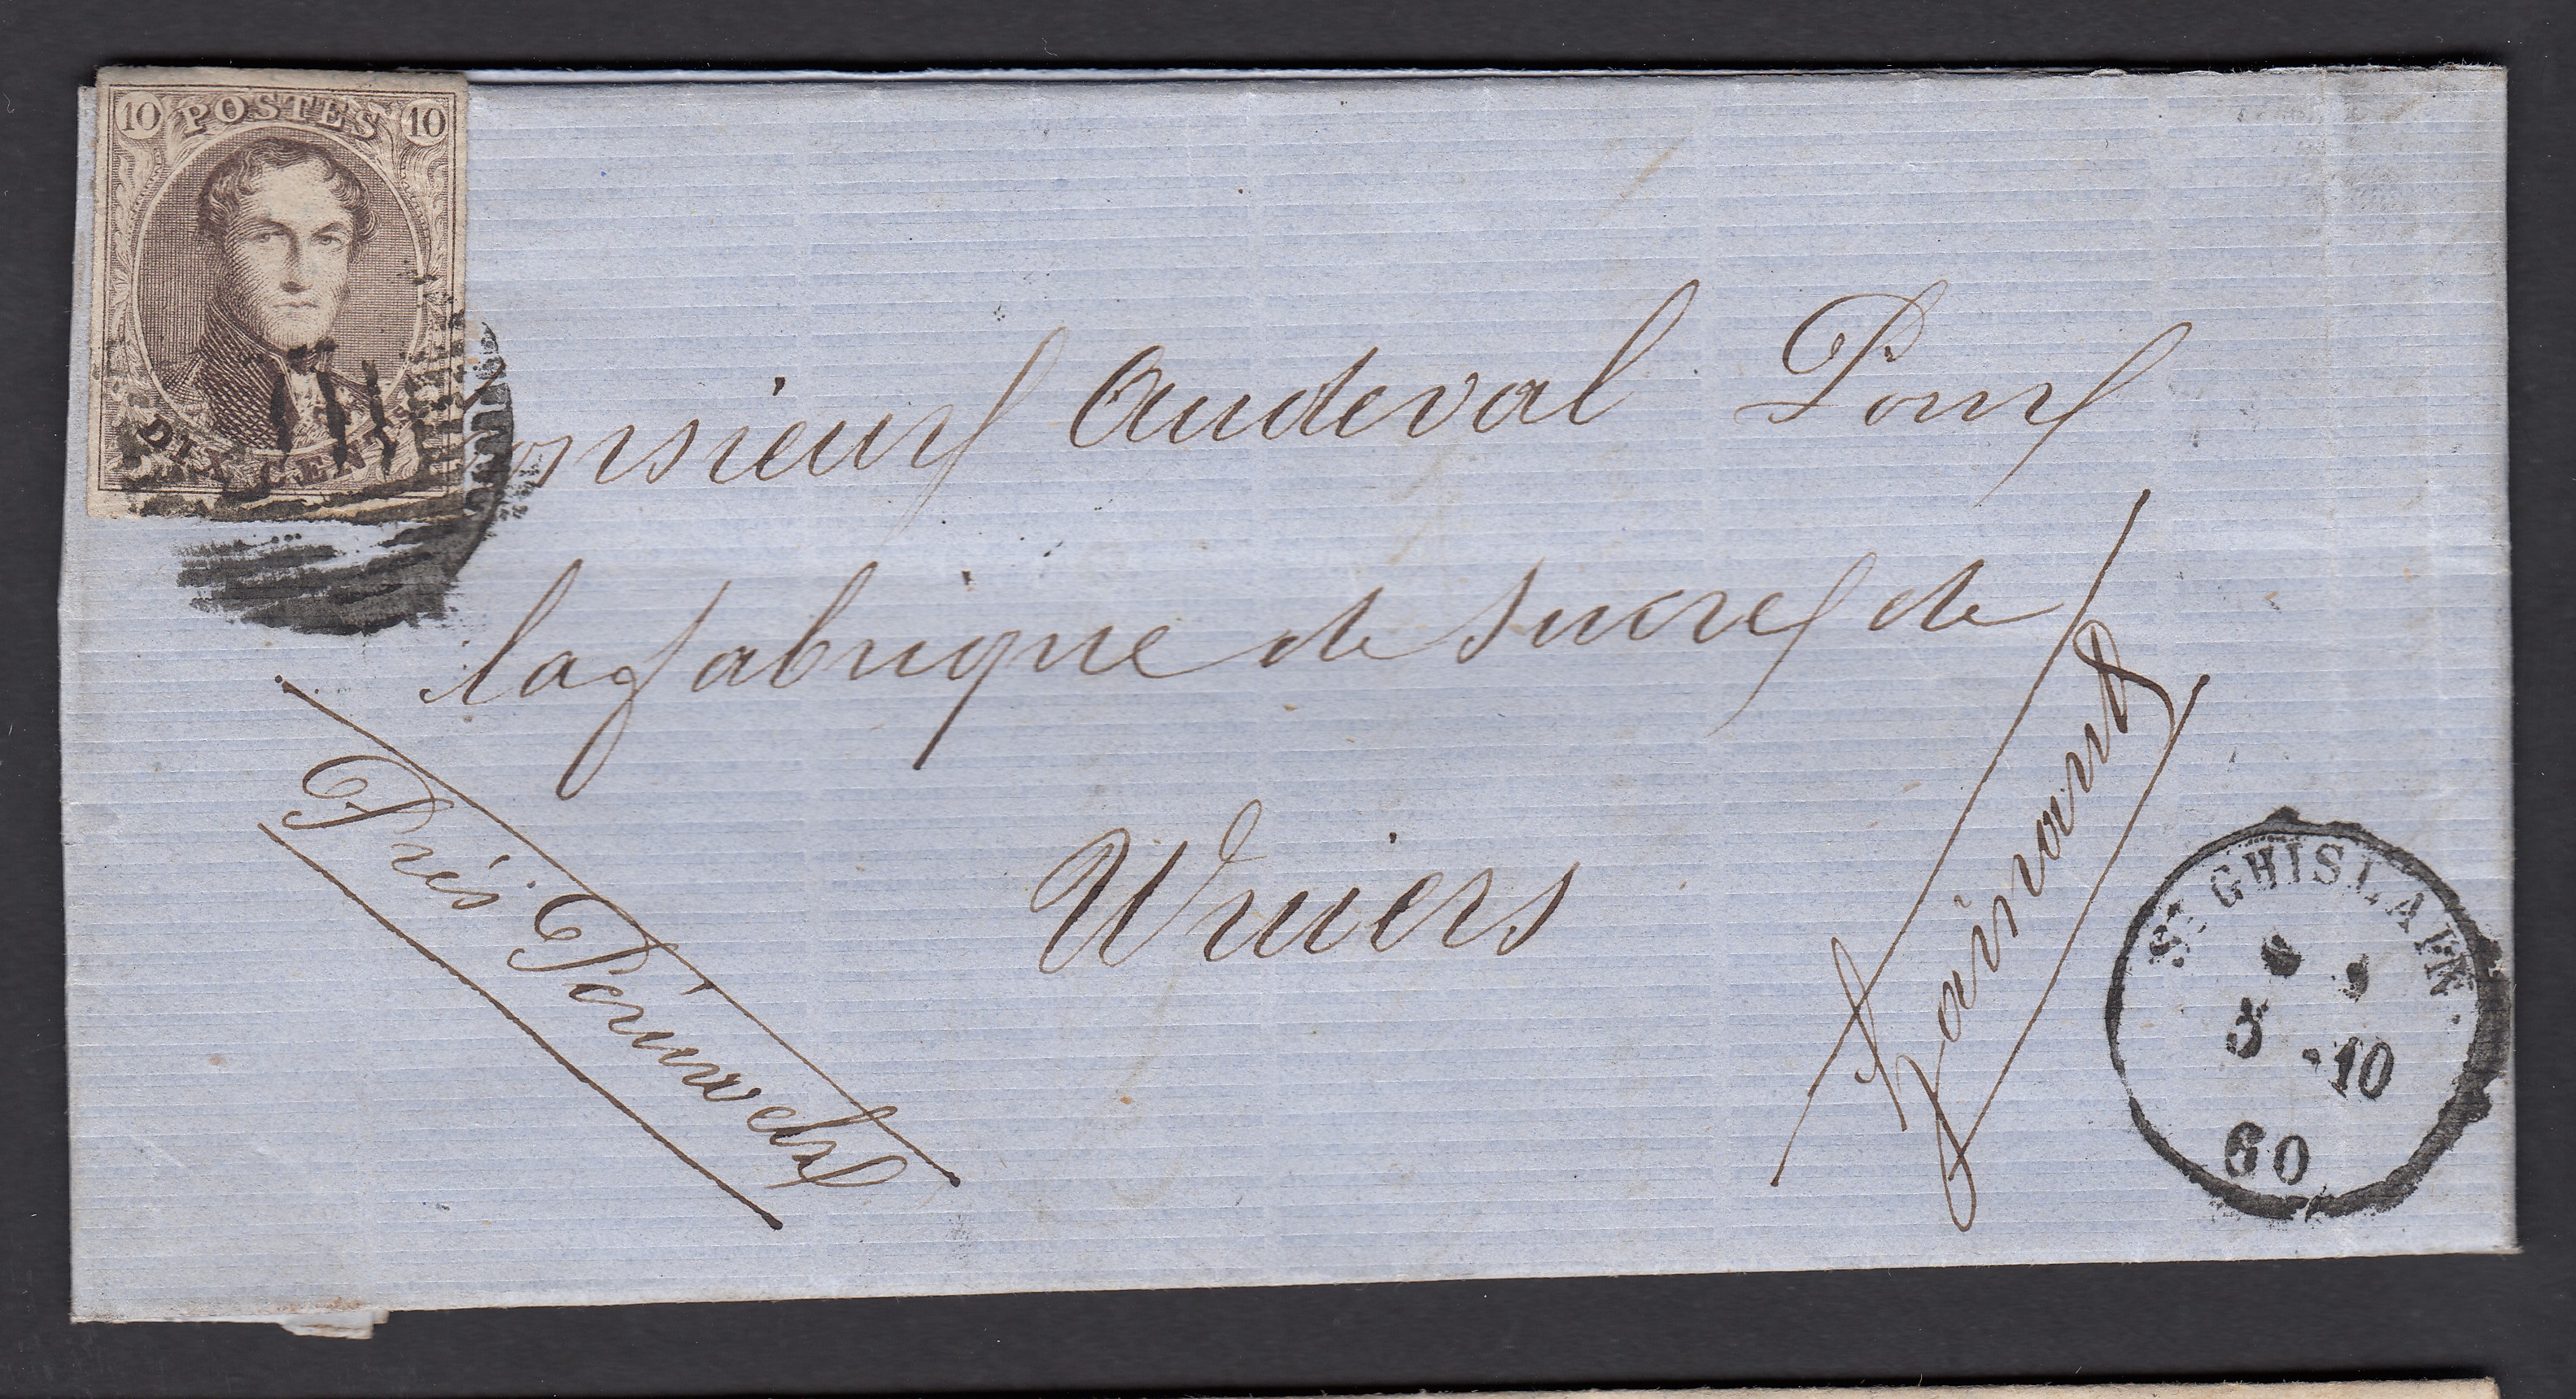 10 POSTES 10
DIX CENTS
onsieur Audeval Pour
la fabrique de Sucre de
Wiers
Près Péruwelz
hainaut
ST GHISLAIN
5 10
60